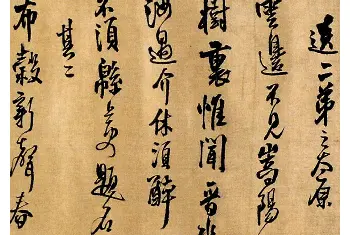 送二弟之太原
雲邊不見嵩陽
樹裏惟聞晉水
過介休須醉
不須綿上題名
其二
布穀新聲春